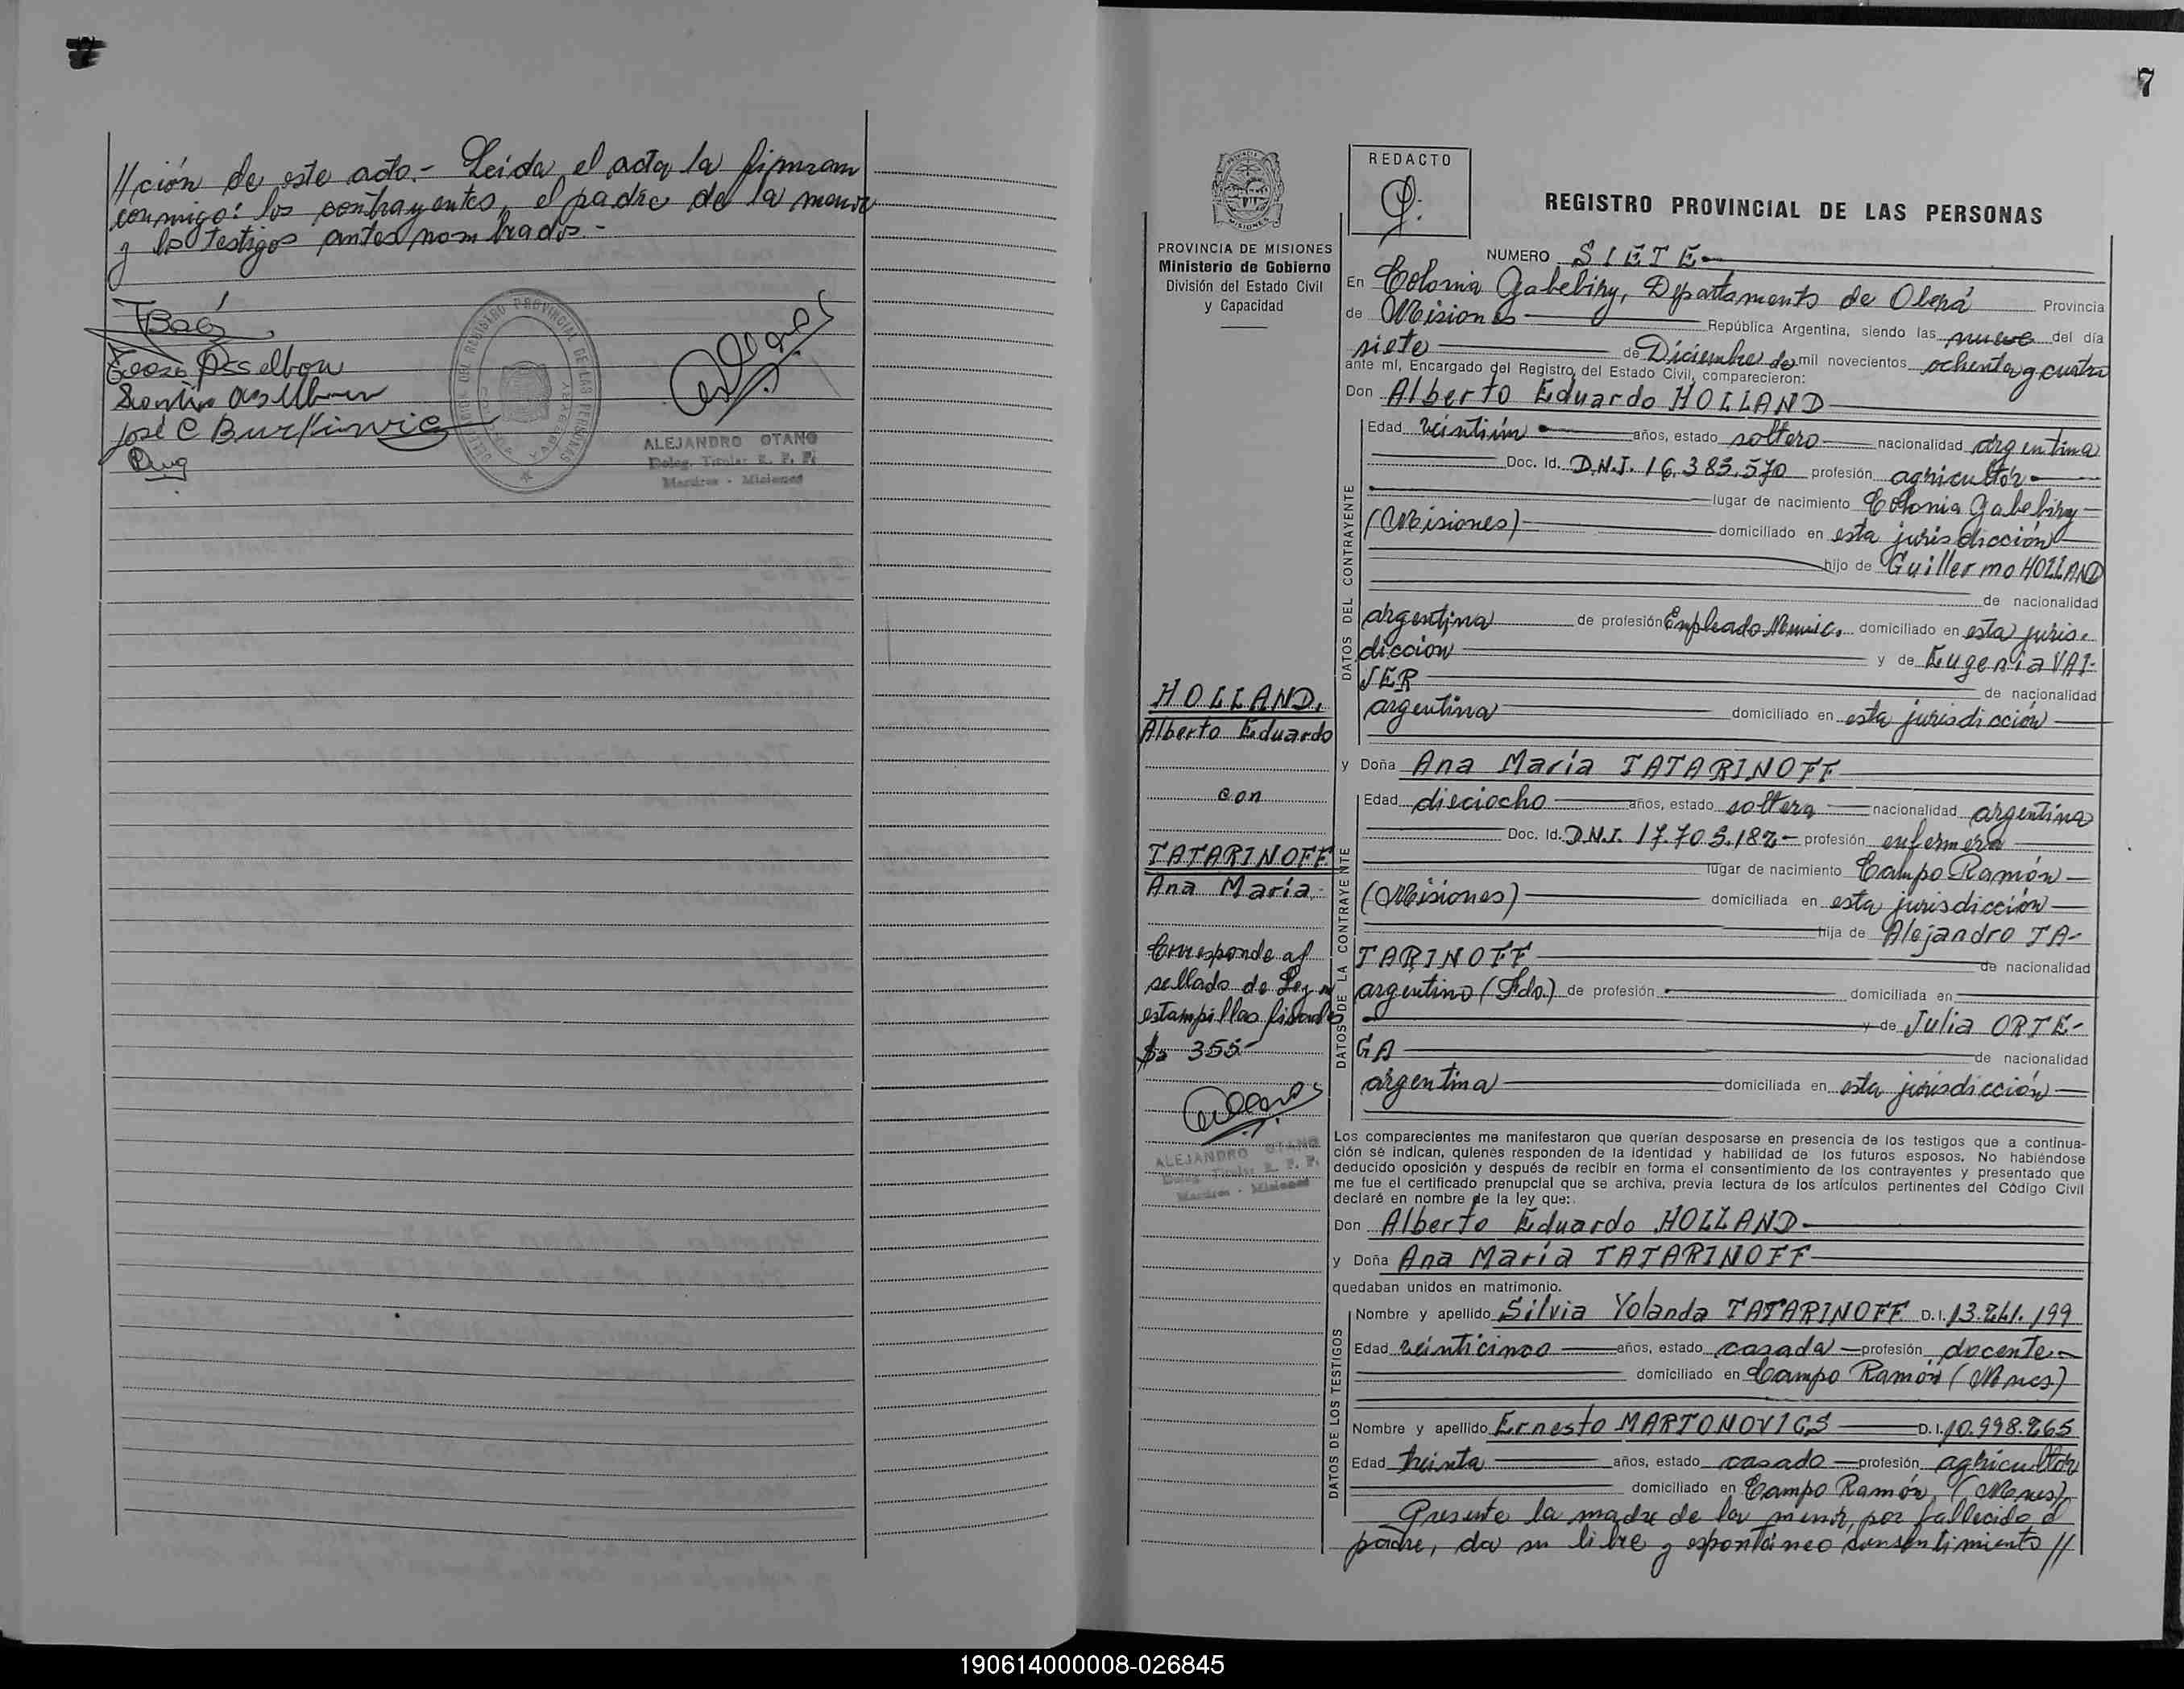 //ción de este acto.- Leída el acta la firman
conmigo: los contrayentes, el padre de la menor
y los testigos antes nombrados.-
José C Burkinvic
ALEJANDRO OTANO
Deleg. Titular R. P. P.
Martires - Misiones
7
REDACTO
REGISTRO PROVINCIAL DE LAS PERSONAS
PROVINCIA DE MISIONES
Ministerio de Gobierno
División del Estado Civil
y Capacidad
NUMERO SIETE
En Colonia Gabebiry, Departamento de Oberá Provincia
de Misiones República Argentina, siendo las nueve del día
siete de Diciembre de mil novecientos ochenta y cuatro
ante mí, Encargado del Registro del Estado Civil, comparecieron:
Don Alberto Eduardo HOLLAND
Edad veintiún años, estado soltero nacionalidad argentina
Doc. Id. D.N.I. 16.383.570 profesión agricultor
lugar de nacimiento Colonia Gabebiry
(Misiones) domiciliado en esta jurisdicción
hijo de Guillermo HOLLAND
de nacionalidad
argentina de profesión Empleado Munic. domiciliado en esta juris-
dicción y de Eugenia VAI-
SER de nacionalidad
argentina domiciliado en esta jurisdicción
DATOS DEL CONTRAYENTE
HOLLAND,
Alberto Eduardo
con
TATARINOFF
Ana María.
Corresponde al
sellado de Ley en
estampillas fiscales
$a 355.-
ALEJANDRO OTANO
Deleg. Titular R. P. P.
Martires - Misiones
y Doña Ana María TATARINOFF
Edad dieciocho años, estado soltera nacionalidad argentina
Doc. Id. D.N.I. 17.705.182- profesión enfermera
lugar de nacimiento Campo Ramón
(Misiones) domiciliada en esta jurisdicción
hija de Alejandro TA-
TARINOFF de nacionalidad
argentino (Fdo.) de profesión domiciliada en
y de Julia ORTE-
GA de nacionalidad
argentina domiciliada en esta jurisdicción
DATOS DE LA CONTRAYENTE
Los comparecientes me manifestaron que querían desposarse en presencia de los testigos que a continua-
ción se indican, quienes responden de la identidad y habilidad de los futuros esposos. No habiéndose
deducido oposición y después de recibir en forma el consentimiento de los contrayentes y presentado que
me fue el certificado prenupcial que se archiva, previa lectura de los artículos pertinentes del Código Civil
declaré en nombre de la ley que:
Don Alberto Eduardo HOLLAND
y Doña Ana María TATARINOFF
quedaban unidos en matrimonio.
Nombre y apellido Silvia Yolanda TATARINOFF D.I. 13.241.199
Edad veinticinco años, estado casada profesión docente
domiciliado en Campo Ramón (Mnes.)
Nombre y apellido Ernesto MARTONOVICS D.I. 10.998.265
Edad treinta años, estado casado profesión agricultor
domiciliado en Campo Ramón, (Mnes)
DATOS DE LOS TESTIGOS
Presente la madre de la menor, por fallecido el
padre, da su libre y espontáneo consentimiento //
190614000008-026845